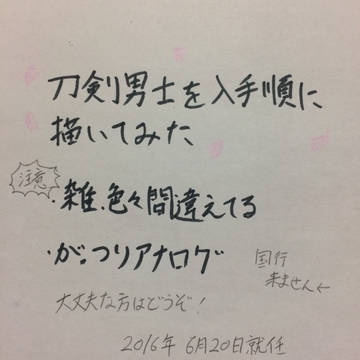 刀剣男士を入手順に
描いてみた
注意
・雑、色々間違えてる
・がっつりアナログ
国行
来ません←
大丈夫な方はどうぞ！
2016年 6月20日就任